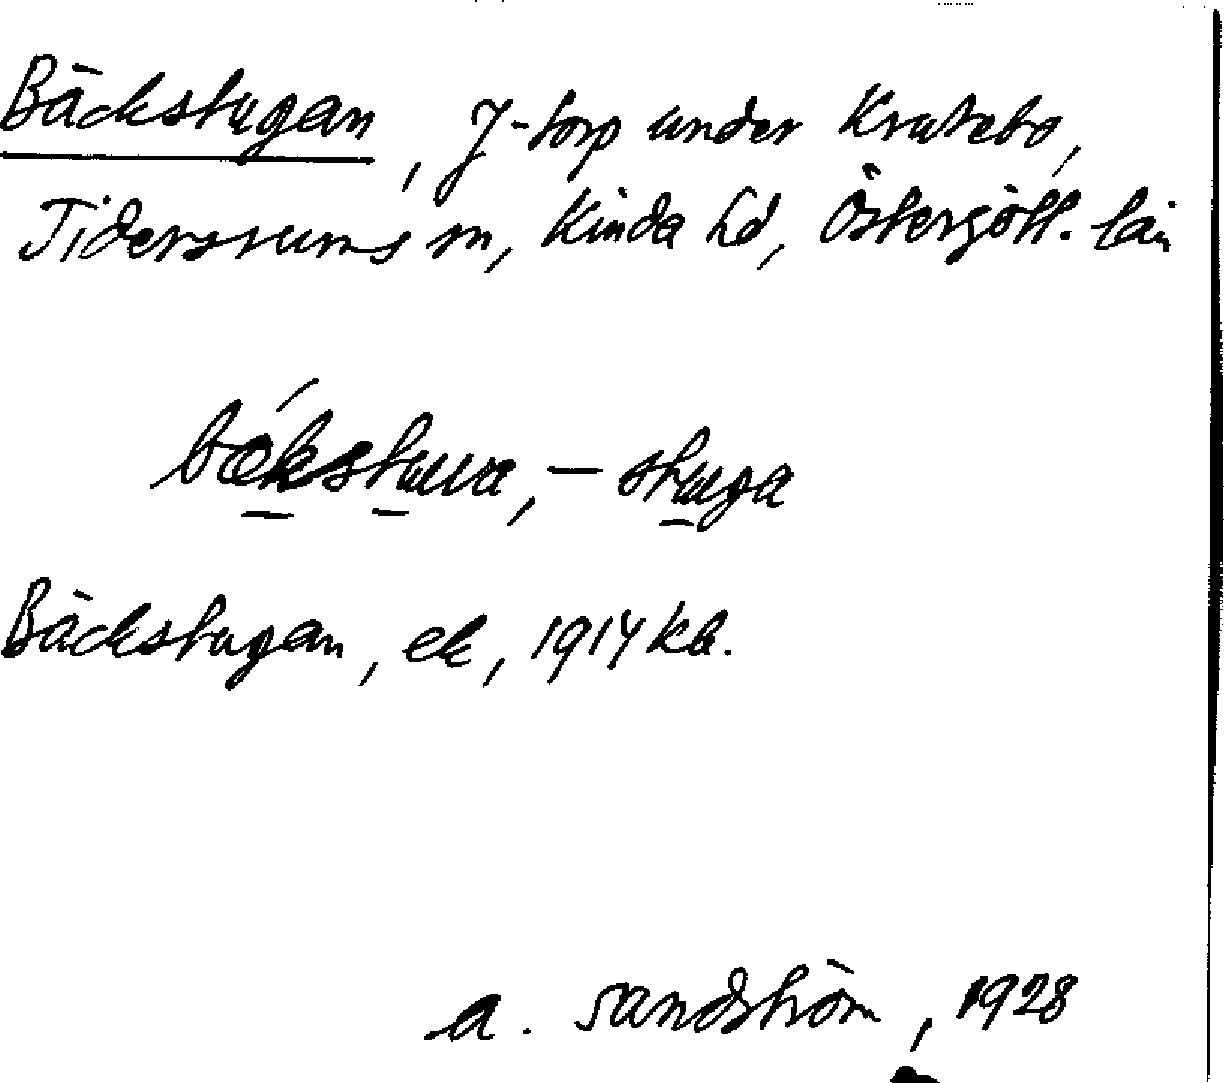 Bäckstugan, J-torp under Krutebo,
Tidersrums sn, Kinda hd, Östergötl. län
bækstuva, – stuga
Bäckstugan, ek, 1914 kb.
A. Sandström, 1928